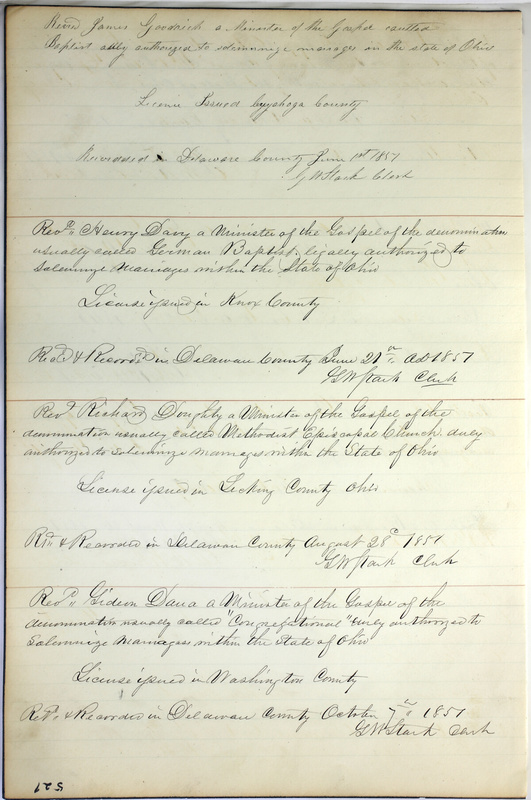 Revd James Goodrich a Minister of the Gospel called
Baptist duly authorized to solemnize marriages in the state of Ohio
License Issued Cuyahoga County
Recorded in Delaware County June 1st 1857
G W Stark Clerk
Revd. Henry Davy a Minister of the Gospel of the denomination
usually called German Baptist, legally authorized to
Solemnize Marriages within the State of Ohio
License issued in Knox County
Recd & Recorded in Delaware County June 21 AD 1857
G W Stark Clerk
Revd Richard Doughty a Minister of the Gospel of the
denomination usually called Methodist Episcopal Church. duly
authorized to Solemnize Marriages within the State of Ohio
License issued in Licking County Ohio
Recd & Recorded in Delaware County August 28 1857
G W Stark Clerk
Revd. Gideon Dana a Minister of the Gospel of the
denomination usually called "Congregational" duly authorized to
Solemnize Marriages within the State of Ohio
License issued in Washington County
Recd. & Recorded in Delaware County October 7 1857
G W Stark Clerk
527